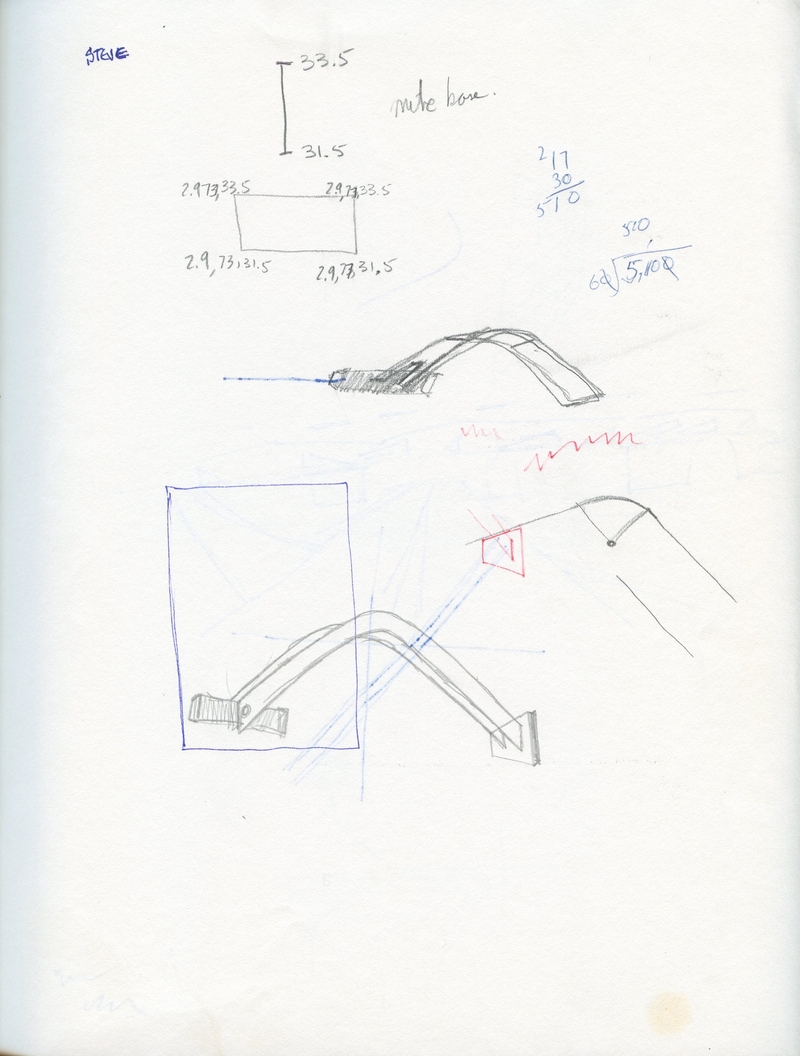 STEVE
33.5
31.5
2.9,73,33.5
2.9,73,33.5
2.9,73,31.5
2.9,73,31.5
217
30
510
510
5,100